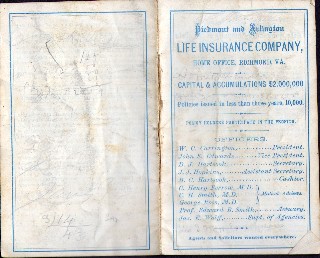 3144
4
Piedmont and Arlington
LIFE INSURANCE COMPANY,
HOME OFFICE, RICHMOND VA.
CAPITAL & ACCUMULATIONS $2,000,000
Policies issued in less than three years, 10,000.
POLICY HOLDERS PARTICIPATE IN THE PROFITS.
OFFICERS.
W. C. Carrington, President.
John E. Edwards, Vice President.
D. J. Hartsook, Secretary.
J. J. Hopkins, Assistant Secretary.
B. C. Hartsook, Cashier.
C. Henry Barrow, M.D.
E. H. Smith, M.D. Medical Advisers.
George Ross, M.D.
Prof. Edward B. Smith, Actuary.
Jas. E. Wolff, Supt. of Agencies.
Agents and Solicitors wanted everywhere.